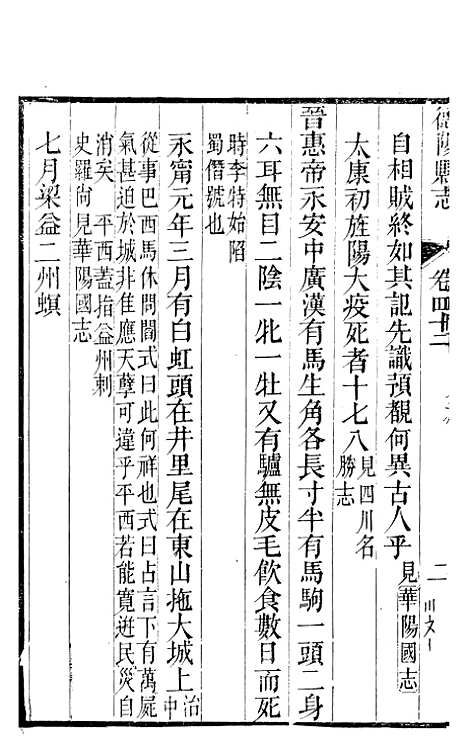 德陽縣志
卷四十二
二
自相賊終如其記先識預覩何異古人乎見華陽國志
太康初旌陽大疫死者十七八見四川名勝志
晉惠帝永安中廣漢有馬生角各長寸半有馬駒一頭二身
六耳無目二陰一牝一牡又有驢無皮毛飲食數日而死
時李特始陷蜀僭號也
永甯元年三月有白虹頭在井里尾在東山拖大城上治中
從事巴西馬休問閻式曰此何祥也式曰占言下有萬屍
氣甚迫於城非佳應天孽可違乎平西若能寬迸民災自
消矣 平西蓋指益州刺史羅尙見華陽國志
七月梁益二州螟